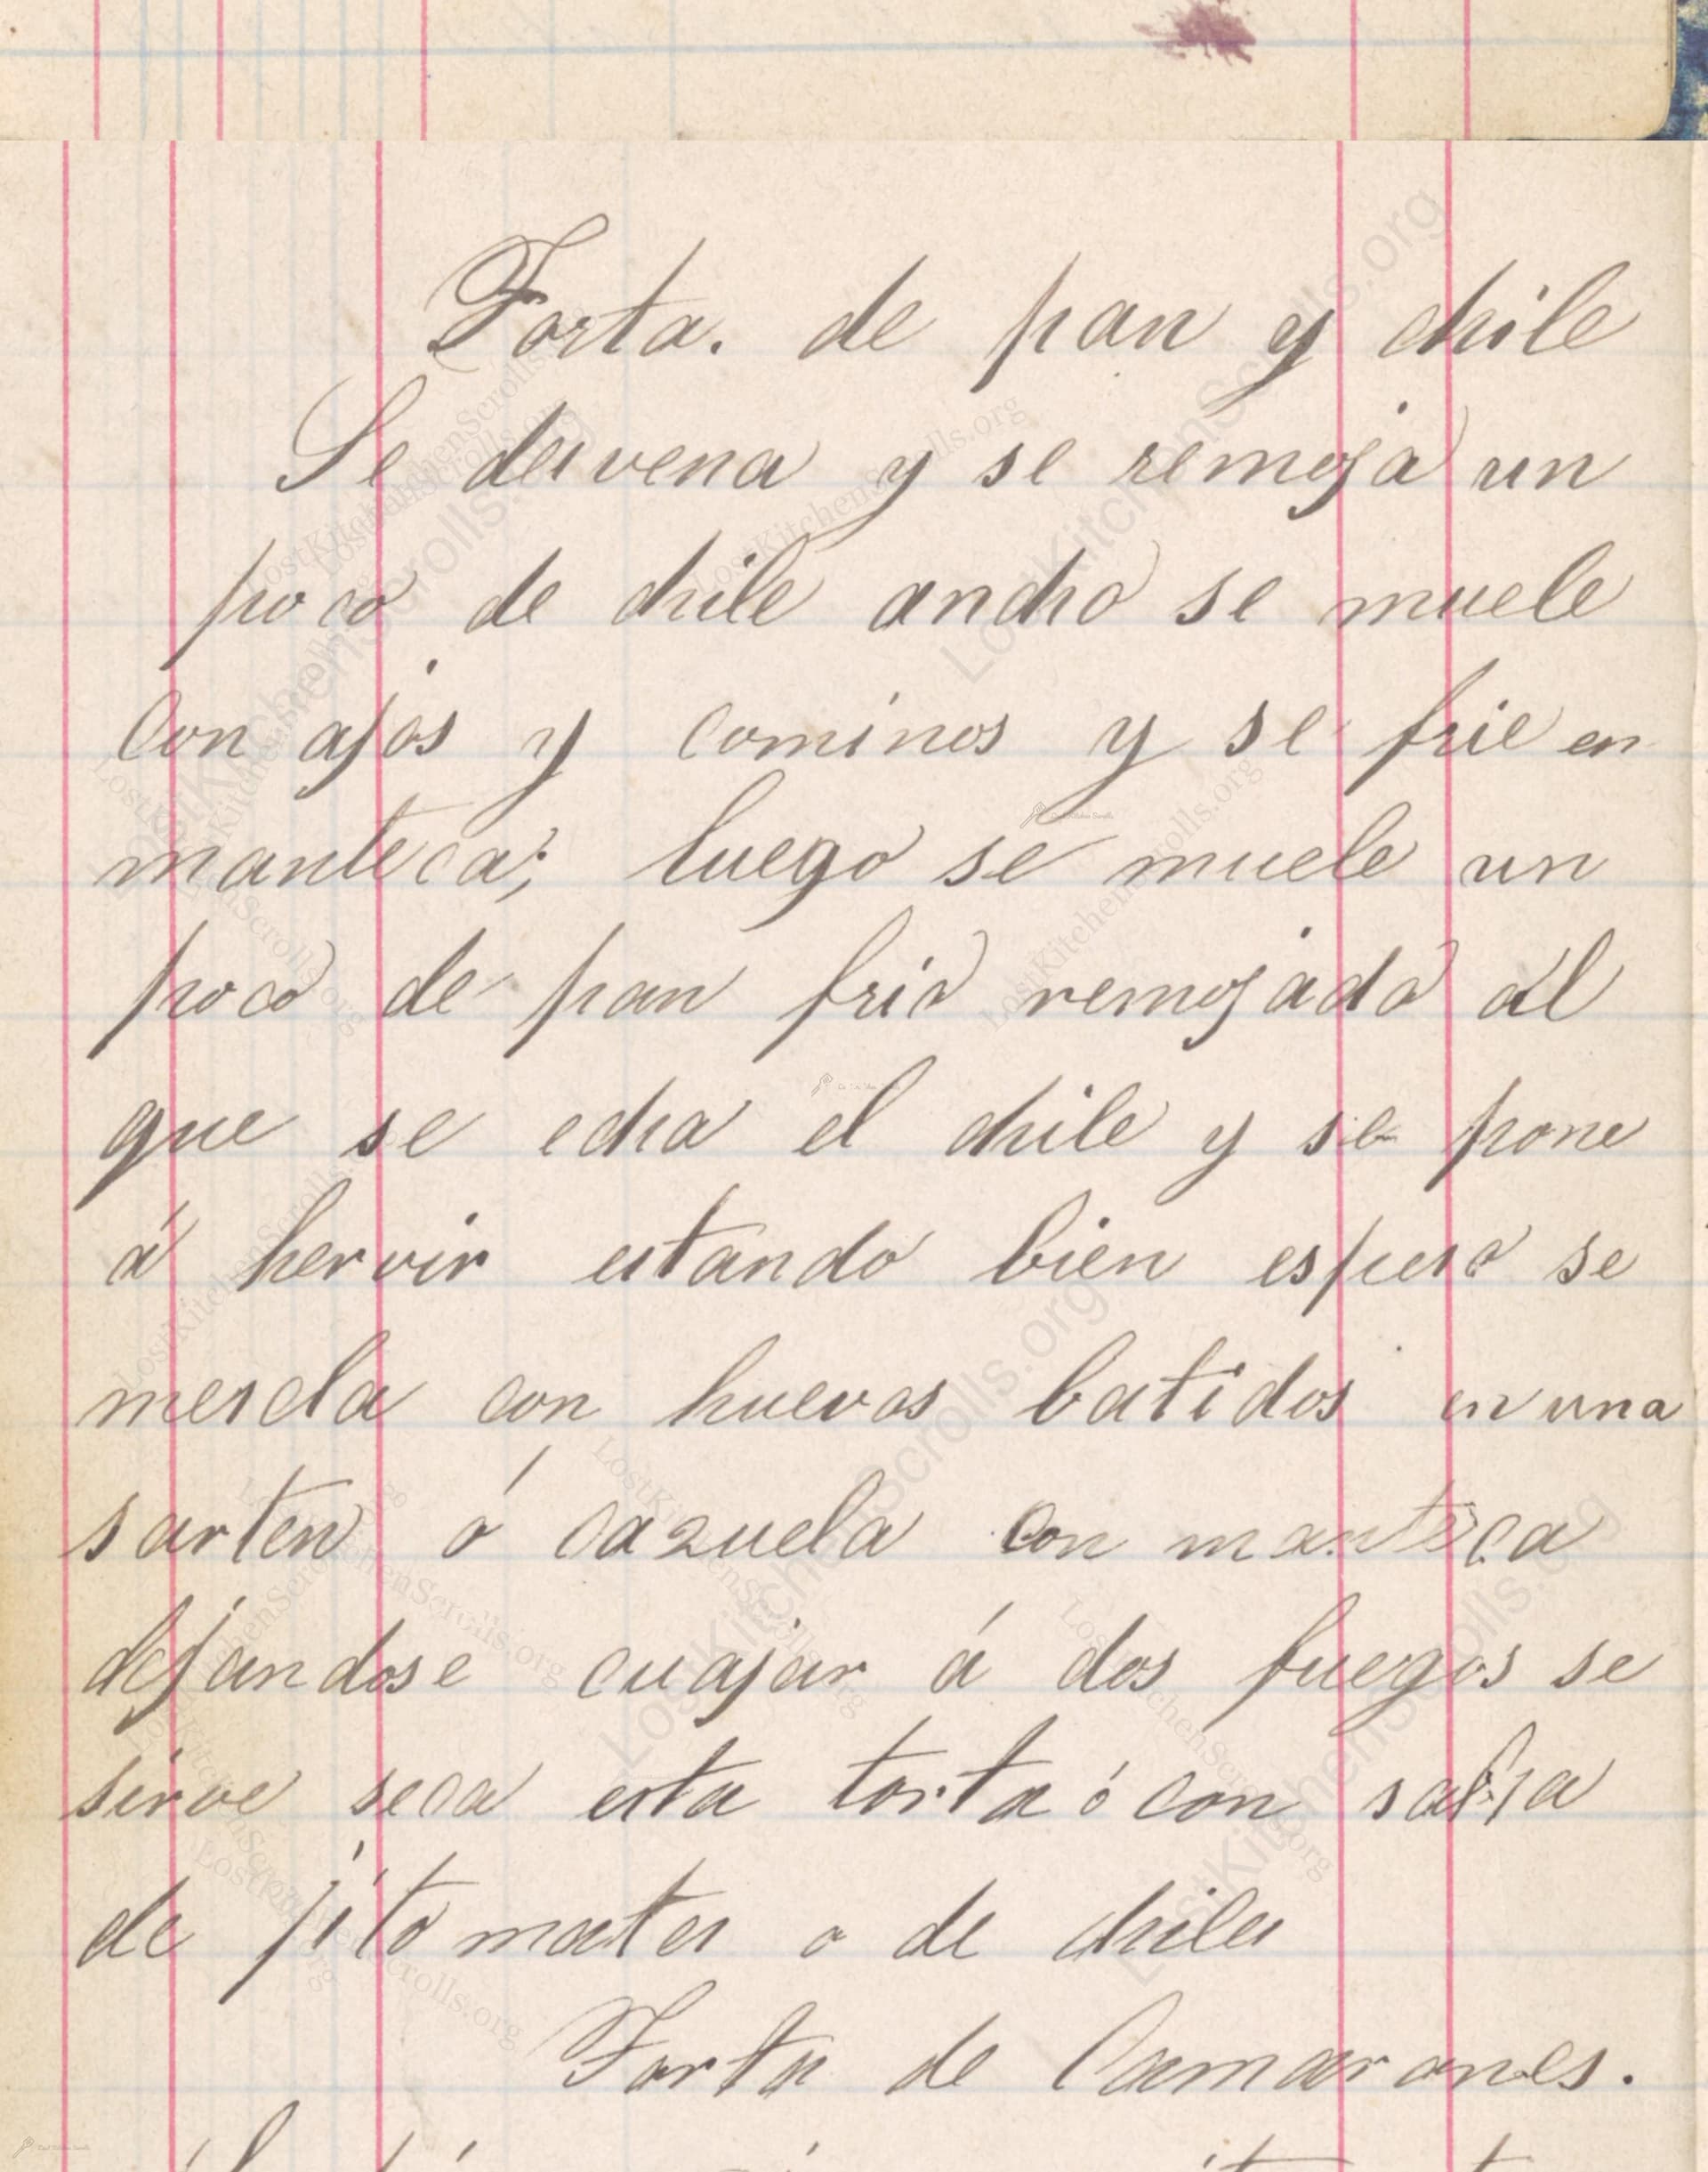 Torta. de pan y chile
Se desvena y se remoja un
poco de chile ancho se muele
con ajos y cominos y se frie en
manteca; luego se muele un
poco de pan frio remojado al
que se echa el chile y se pone
á hervir estando bien espeso se
mescla con huevos batidos en una
sarten ó cazuela con manteca
dejandose cuajar á dos fuegos se
sirve seca esta torta ó con salsa
de jitomates o de chiles
Torta de Camarones.